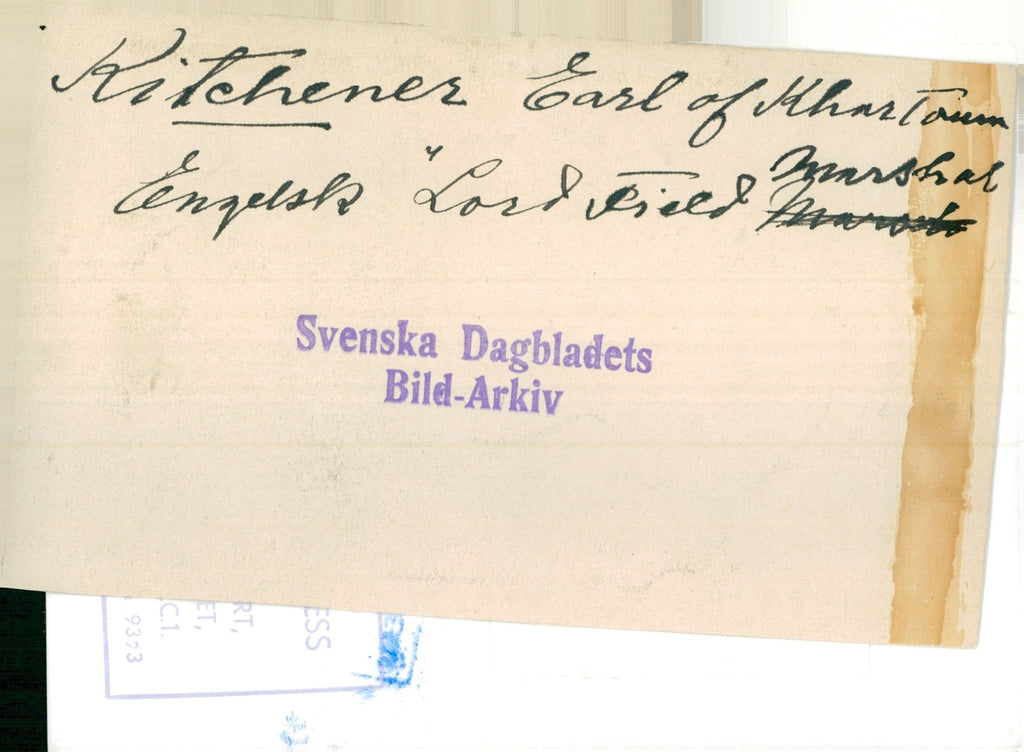 Kitchener Earl of Khartoum
Engelsk "Lord Field Marshal
Svenska Dagbladets
Bild-Arkiv
ESS
RT,
ET,
C.1.
9373